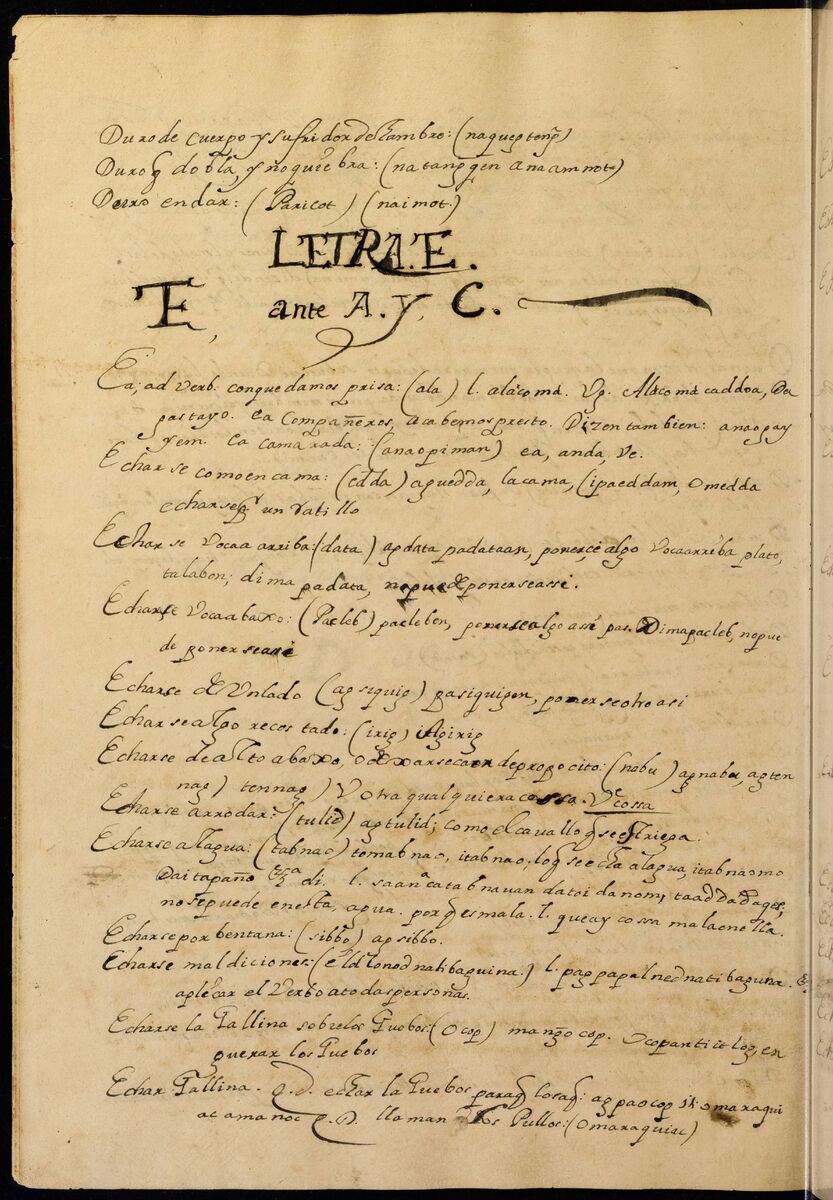 Duro de cuerpo y sufridor de hambre: (naqueptenġ)
Duro q̃ dobla, y no quiebra: (natanġqen anaamnot)
Duro en dar: (Paricot) (naimot.)
LETRA. E.
E, ante A. y, C.
Ea; adverb. conquedamos prisa: (ala) l. alàcomà. Vg. Alàcomà caddoa, Da
pastayo. ea Compañeros, acabemos presto. Dizen tambien: anaogay
yem. ea camarada: (anaopiman) ea, anda, ve.
Echarse como en cama: (edda) aguedda, la cama, (ipaeddam, omedda
echarse pr un ratillo
Echarse Vocaa arriba: (data) agdata padataan, ponerse algo Vocaarriba plato,
talabon; dima padata, no puede ponerse assi.
Echarse Vocaabaxo: (Pacleb) pacleben, ponerse algo asi pas. Dimapacleb, no pue
de ponerse assi
Echarse de Un lado (agsiquig) pasiquigen, ponerse otro asi
Echarse algo recostado: (irig) iAgirig
Echarse de alto abaxo, o dexarse caer de proposito: (nabu) agnabu, agten
nag) tennag) V otra qualquiera cossa. Ve cossa
Echarse arrodar: (tulid) agtulid; como el cavallo q̃ se estriega.
Echarse al agua: (tabnao) tomabnao, itabnao, lo q̃ se echa al agua, itabnaomo
Daitapaño di. l. saanca tabnauan datoi danom, taadda dages,
no se puede en esta agua. porq̃ es mala. l. que ay cossa mala en ella.
Echarse por bentana: (sibbo) agsibbo.
Echarse maldiciones: l. pagpapal
aplicar el Verbo a todas personas.
Echarse la Gallina sobre los Guebos: (Ocop) manġocop. Ocopanti itlog, en
guerar los Guebos
Echar Gallina. q.D. echar la Guebos para q̃ los saq̃: agpaocop iti omaraqui
ac a manoc q.D. llaman los Pullos: (Omaraquiac)